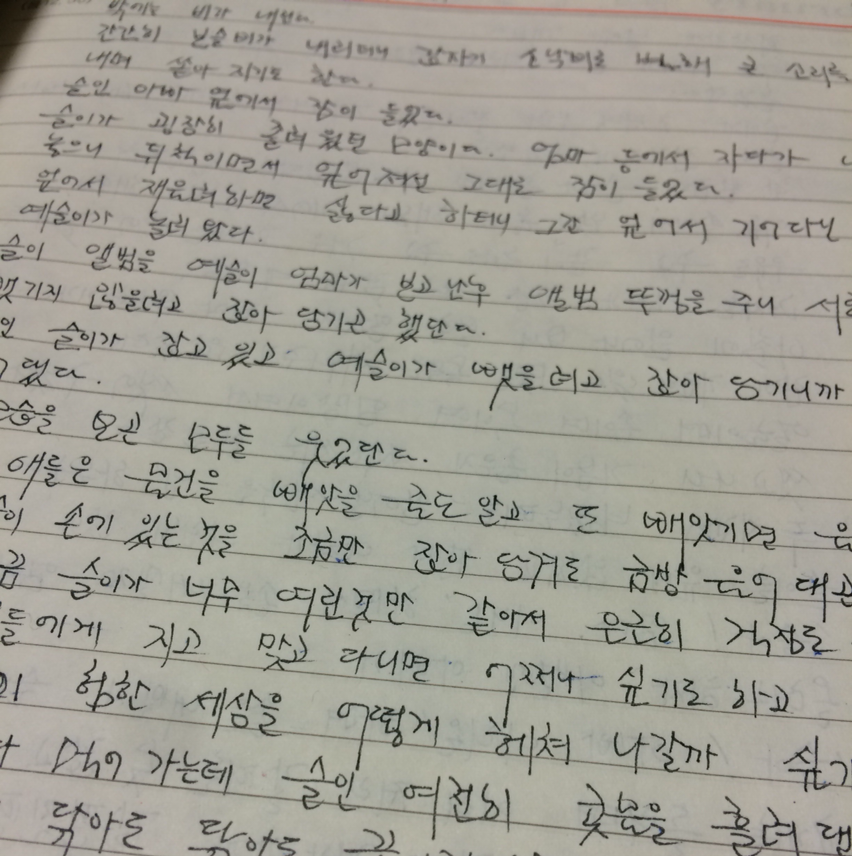 밖에는 비가 내렸다.
간간히 보슬비가 내리더니 갑자기 소낙비로 변해 큰 소리를
내며 쏟아 지기도 한다.
슬인 아빠 옆에서 잠이 들었다.
슬이가 굉장히 졸려 웠던 모양이다. 엄마 등에서 자다가
눞으니 뒤척이면서 엎어져선 그대로 잠이 들었다.
엎어서 재울려하면 싫다고 하더니 그간 엎어서 기어다닌
예슬이가 놀러 왔다.
슬이 앨범을 예슬이 엄마가 보고 난후 앨범 뚜껑을 주니 서로
뺏기지 않을려고 잡아 당기곤 했단다.
슬이가 잡고 있고 예슬이가 뺏을려고 잡아 당기니까
됐다.
모습을 보곤 모두들 웃었단다.
애들은 물건을 빼앗을 줄도 알고 또 빼앗기면
손에 있는 것을 조금만 잡아 당겨도 금방 울어 대곤
슬이가 너무 여린것만 같아서 은근히 걱정도
들에게 지고 맞고 다니면 어쩌나 싶기도 하고
험한 세상을 어떻게 헤쳐 나갈까
먹어 가는데 슬인 여전히 콧물을 흘려
닦아도 닦아도